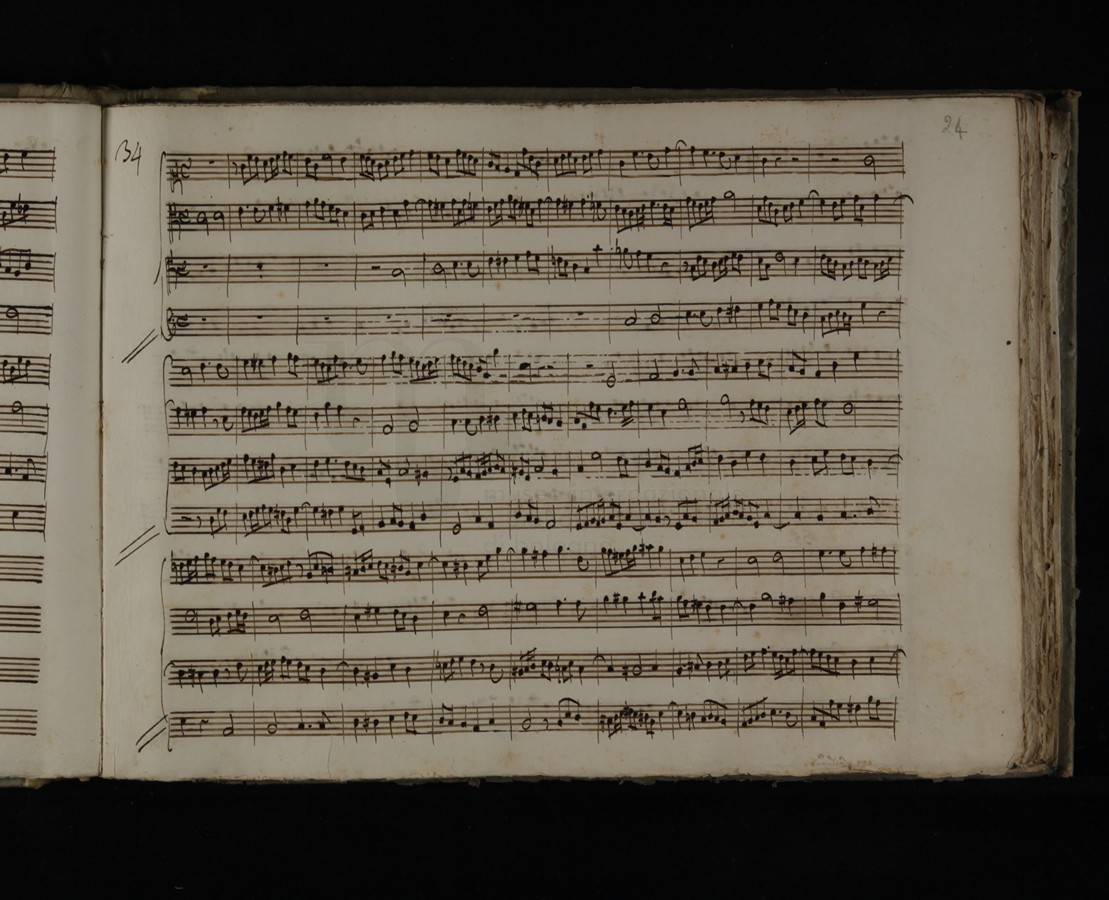 34
24